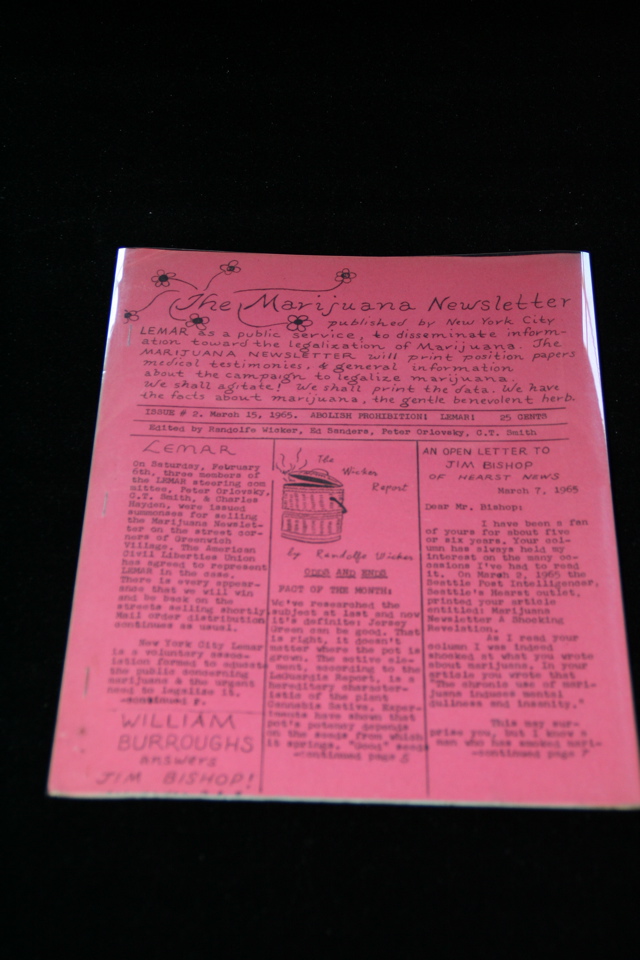 The Marijuana Newsletter
published by New York City
LEMAR as a public service, to disseminate inform-
ation toward the legalization of Marijuana. The
MARIJUANA NEWSLETTER will print position papers
medical testimonies, & general information
about the campaign to legalize marijuana.
We shall agitate! We shall print the data. We have
the facts about marijuana, the gentle benevolent herb.
ISSUE # 2. March 15, 1965. ABOLISH PROHIBITION! LEMAR! 25 CENTS
Edited by Randolfe Wicker, Ed Sanders, Peter Orlovsky, C.T. Smith
LEMAR
On Saturday, February
6th, three members of
the LEMAR steering com
mittee, Peter Orlovsky,
C.T. Smith, & Charles
Hayden, were issued
summonses for selling
the Marijuana Newslet-
ter on the street cor-
ners of Greenwich
Village. The American
Civil Liberties Union
has agreed to represent
LEMAR in the case.
There is every appear-
ance that we will win
and be back on the
streets selling shortly.
Mail order distribution
continues as usual.
New York City Lemar
is a voluntary assoc-
iation formed to
the public concerning
marijuana & the urgent
need to legalize it.
-continued p.
WILLIAM
BURROUGHS
answers
JIM BISHOP!
The
Wicker
Report
by Randolfe Wicker
ODDS AND ENDS
FACT OF THE MONTH:
We've researched the
subject at last and now
it's definite: Jersey
Green can be good. That
is right, it doesn't
matter where the pot is
grown. The active ele-
ment, according to the
LaGuardia Report, is a
hereditary character-
istic of the plant
Cannabis Sativa. Exper-
iments have shown that
pot's potency depends
on the seeds from which
it springs. "Good" seeds
-continued page 5
AN OPEN LETTER TO
JIM BISHOP
OF HEARST NEWS
March 7, 1965
Dear Mr. Bishop:
I have been a fan
of yours for about five
or six years. Your col-
umn has always held my
interest on the many oc-
casions I've had to read
it. On March 2, 1965 the
Seattle Post Intelligencer,
Seattle's Hearst outlet,
printed your article
entitled: Marijuana
Newsletter A Shocking
Revelation.
As I read your
column I was indeed
shocked at what you wrote
about marijuana. In your
article you wrote that
"The chronic use of mari-
juana induces mental
dullness and insanity."
This may sur-
prise you, but I know a
man who has smoked mari-
-continued page